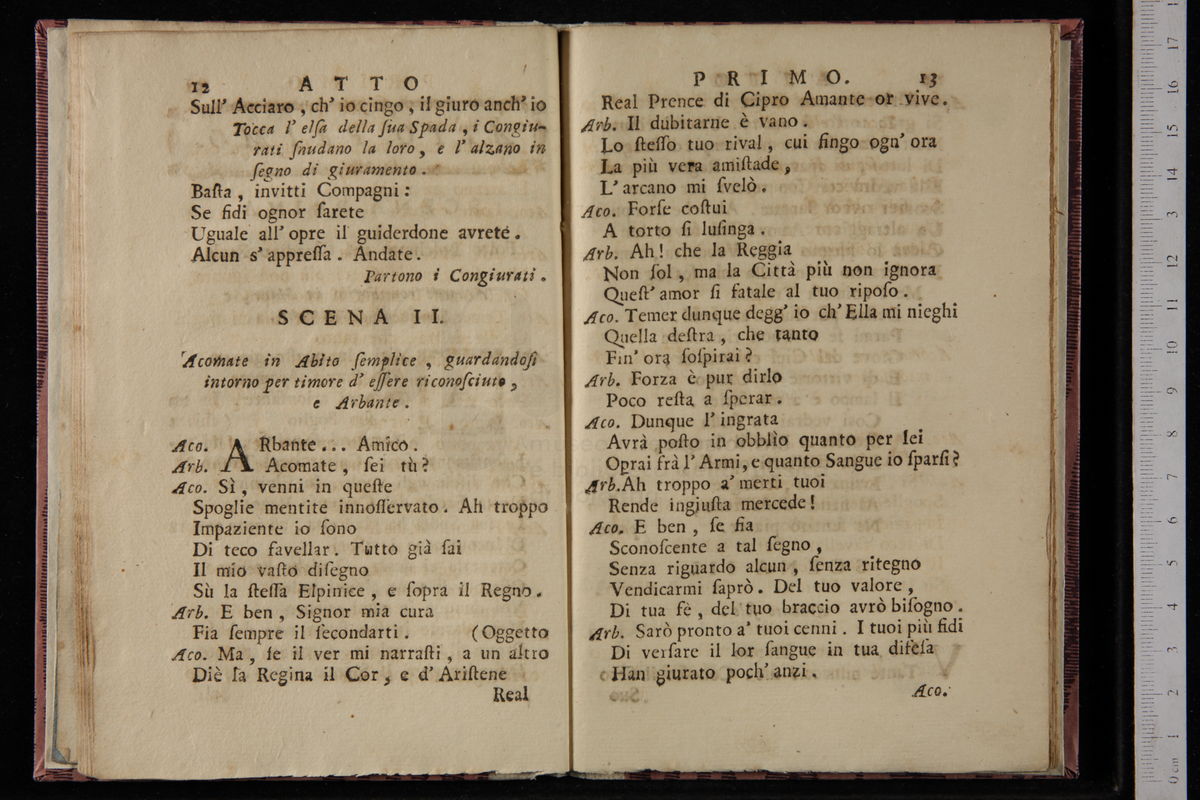 12 ATTO
Sull' Acciaro, ch' io cingo, il giuro anch' io
Tocca l' elſa della ſua Spada, i Congiu-
rati ſnudano la loro, e l' alzano in
ſegno di giuramento.
Baſta, invitti Compagni:
Se fidi ognor ſarete
Uguale all' opre il guiderdone avrete.
Alcun s' appreſſa. Andate.
Partono i Congiurati.
SCENA II.
Acomate in Abito ſemplice, guardandoſi
intorno per timore d' eſſere riconoſciuto,
e Arbante.
Aco. ARbante... Amico.
Arb. Acomate, ſei tù?
Aco. Sì, venni in queſte
Spoglie mentite innoſſervato. Ah troppo
Impaziente io ſono
Di teco favellar. Tutto già ſai
Il mio vaſto diſegno
Sù la ſteſſa Elpinice, e ſopra il Regno.
Arb. E ben, Signor mia cura
Fia ſempre il ſecondarti. (Oggetto
Aco. Ma, ſe il ver mi narraſti, a un altro
Diè la Regina il Cor, e d' Ariſtene
Real
PRIMO. 13
Real Prence di Cipro Amante or vive.
Arb. Il dubitarne è vano.
Lo ſteſſo tuo rival, cui fingo ogn' ora
La più vera amiſtade,
L' arcano mi ſvelò.
Aco. Forſe coſtui
A torto ſi luſinga.
Arb. Ah! che la Reggia
Non ſol, ma la Città più non ignora
Queſt' amor ſi fatale al tuo ripoſo.
Aco. Temer dunque degg' io ch' Ella mi nieghi
Quella deſtra, che tanto
Fin' ora ſoſpirai?
Arb. Forza è pur dirlo
Poco reſta a ſperar.
Aco. Dunque l' ingrata
Avrà poſto in obblìo quanto per lei
Oprai frà l' Armi, e quanto Sangue io ſparſi?
Arb. Ah troppo a' merti tuoi
Rende ingiuſta mercede!
Aco. E ben, ſe ſia
Sconoſcente a tal ſegno,
Senza riguardo alcun, ſenza ritegno
Vendicarmi ſaprò. Del tuo valore,
Di tua fè, del tuo braccio avrò biſogno.
Arb. Sarò pronto a' tuoi cenni. I tuoi più fidi
Di verſare il lor ſangue in tua difeſa
Han giurato poch' anzi.
Aco.